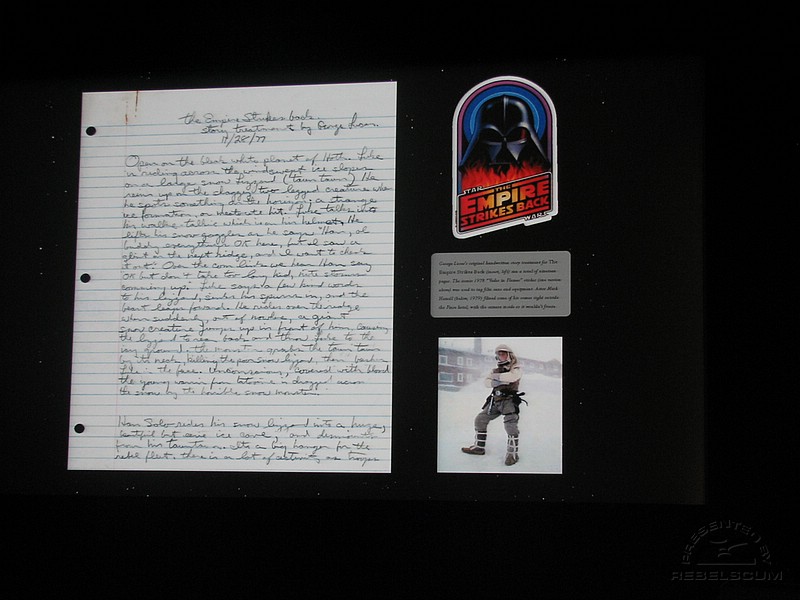 the Empire Strikes back
story treatment by George Lucas
11/28/77
Open on the bleak white planet of Hoth. Luke
is riding across the windswept ice slopes
on a large snow lizzard (taun taun) He
reins up on the shaggy two legged creature when
he spots something
ice formation, or meteorite hit. Luke talks into
his walkie-talkie which is in his helmet. He
lifts his snow goggles as he says "Han, ol
buddy everything's OK here, but I saw a
glint on the next ridge, and I want to check
it out." Over the com link we hear Han say
OK but don't take too long kid, nite storms
comming up." Luke says a few kind words
to his lizzard, and the
beast leaps forward. He rides over the ridge
when suddenly, out of nowhere, a giant
snow creature jumps up in front of him, causing
the lizzard to rear back and throw Luke to the
icy ground. the monster grabs the taun taun
by its neck, killing the poor snow lizard, then bashes
Luke in the face. Unconscious, covered with blood
the young warrior from tatooine is dragged across
the snow by the horrible snow monster.
Han Solo rides his snow lizzard into a huge,
ice cave, and dismounts
from his tauntaun. Its a big hangar for the
rebel fleet. there is a lot of activity as troops
STAR THE
EMPIRE
STRIKES BACK
WARS
George Lucas's original handwritten story treatment for The
Empire Strikes Back
PRESENTED BY
REBELSCUM